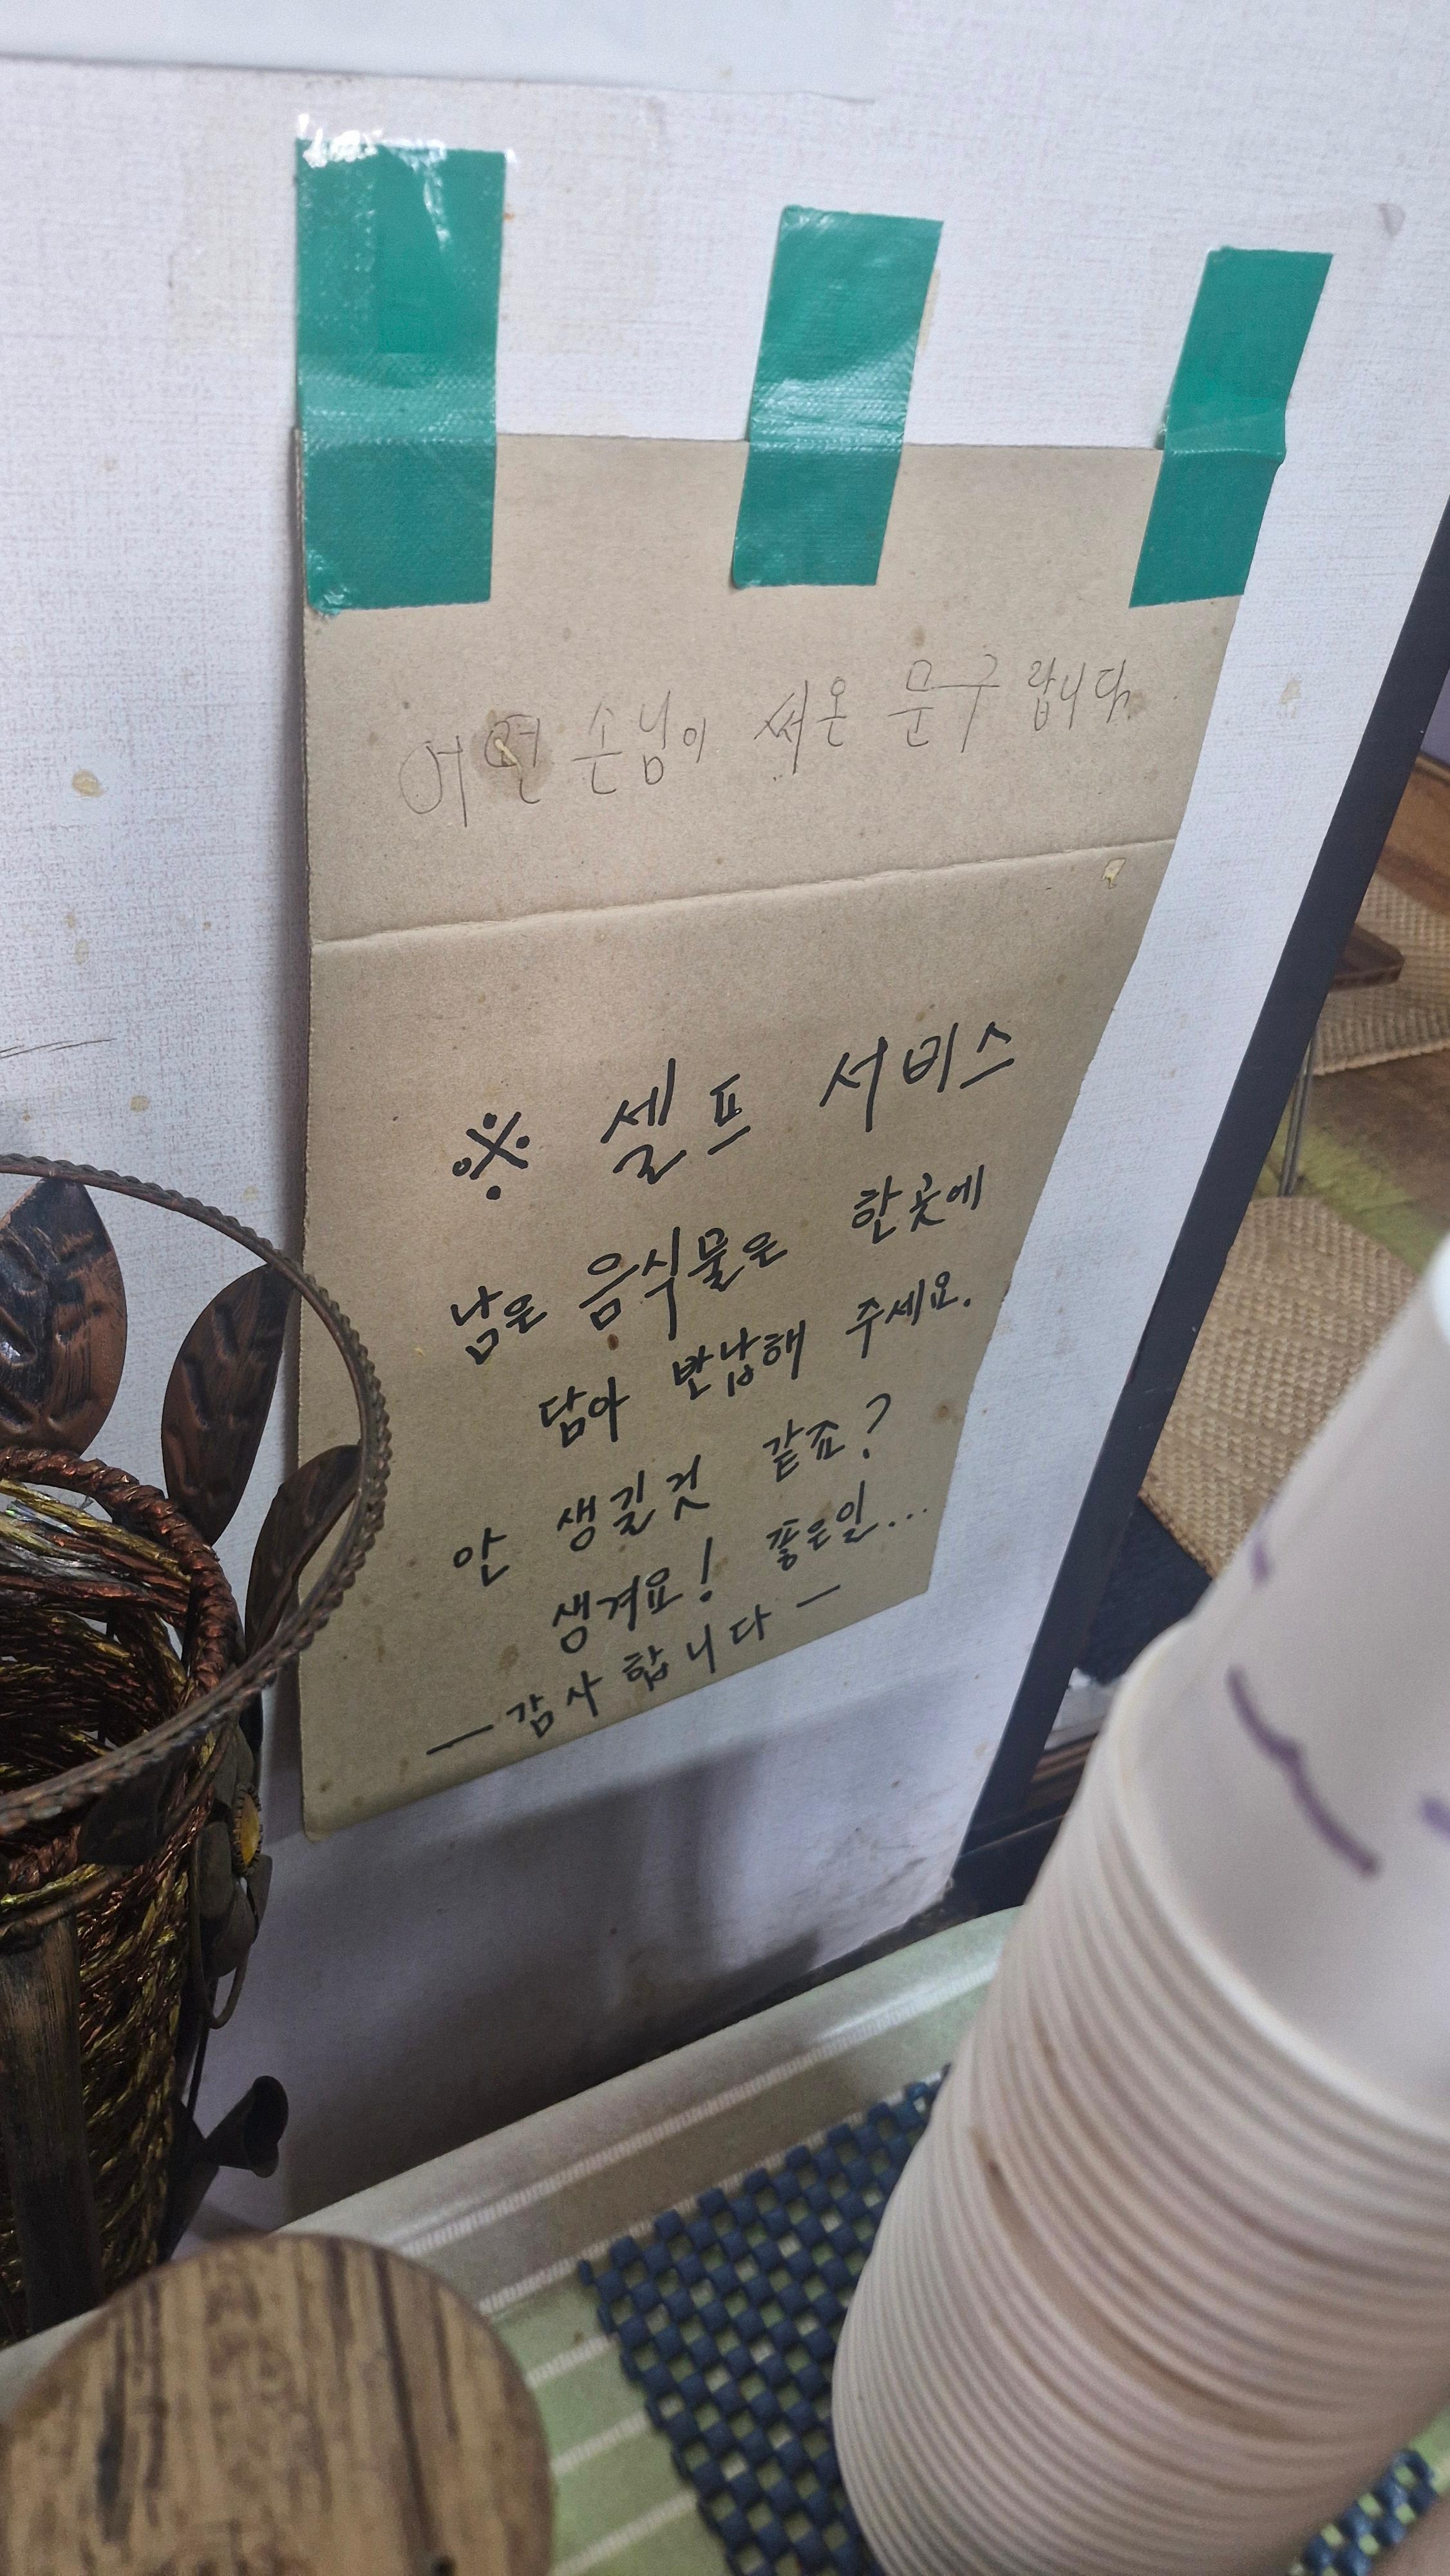 어떤 손님이 써온 문구랍니다
※ 셀프 서비스
남은 음식물은 한곳에
담아 반납해 주세요.
안 생길것 같죠?
생겨요! 좋은일...
— 감사합니다 —